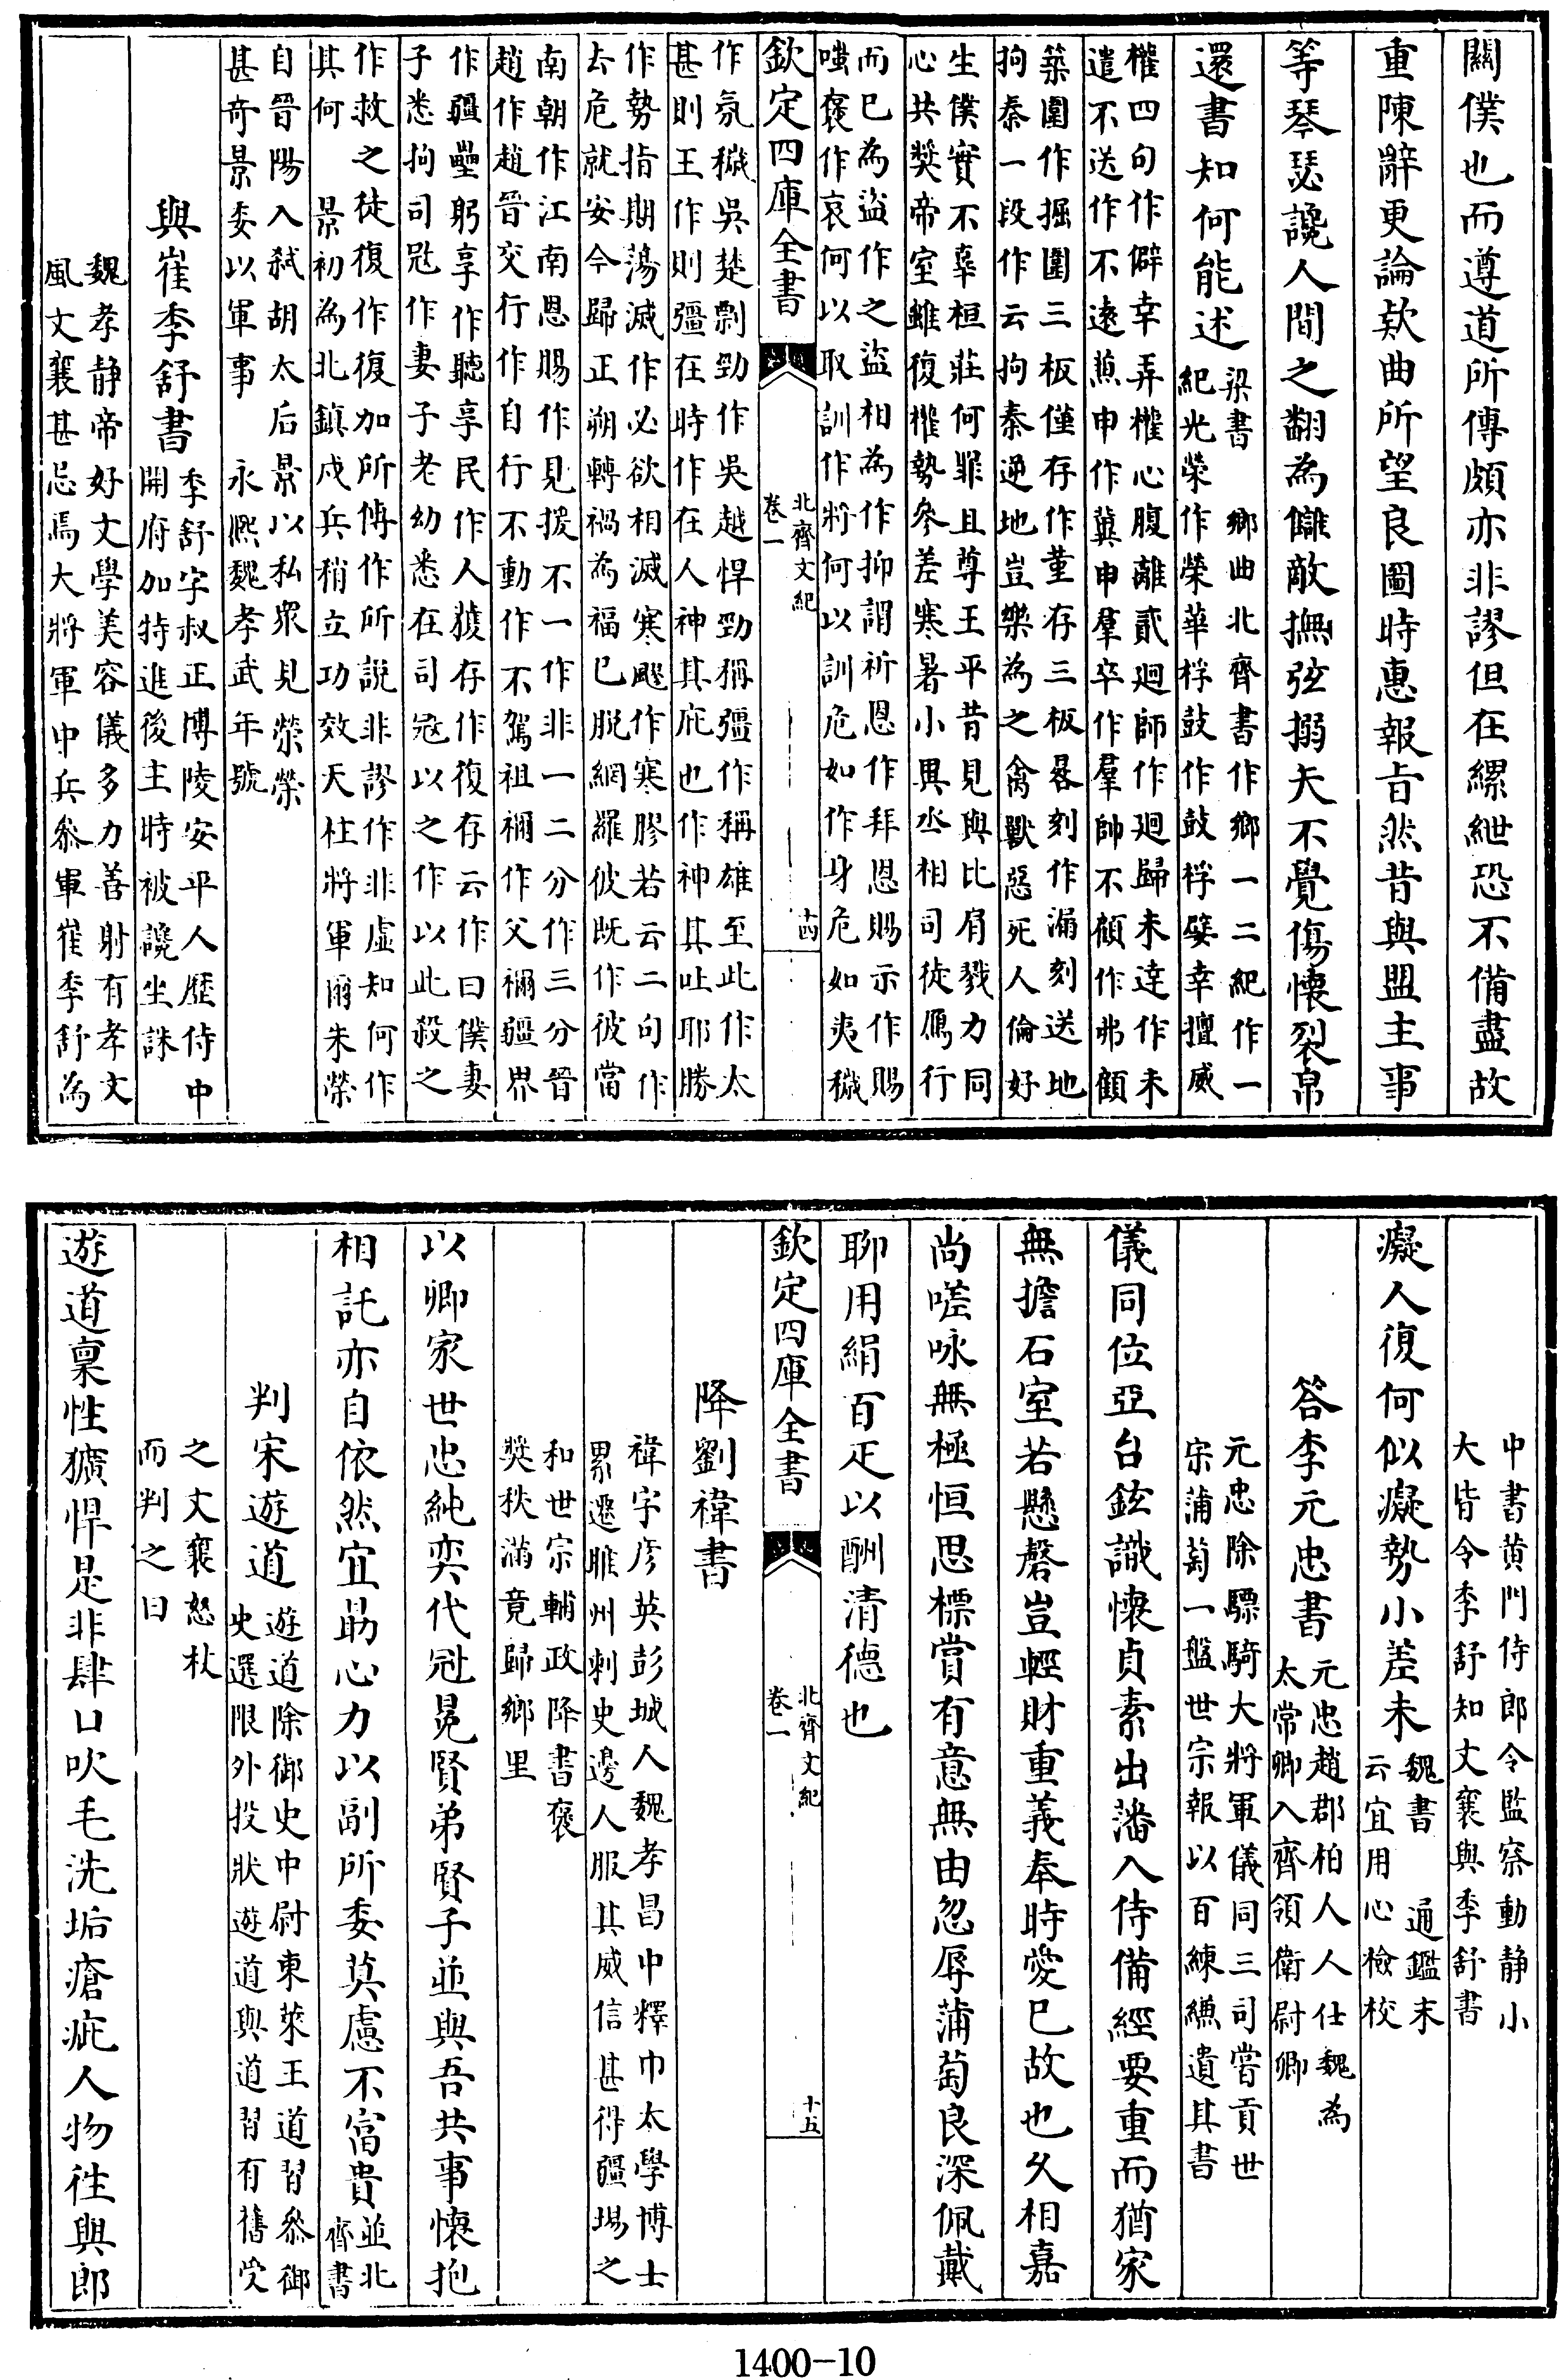 關僕也而遵道所傳頗亦非謬但在縲紲恐不備盡故
重陳辭更論款曲所望良圖時惠報旨然昔與盟主事
等琴瑟讒人間之翻為讎敵撫弦搦矢不覺傷懷裂帛
還書知何能述
梁書　鄉曲北齊書作鄉一二紀作一
紀光榮作榮華桴鼓作鼓桴嬖幸擅威
權四句作僻幸弄權心腹離貳廻師作廻歸未達作未
遣不送作不遠煎申作冀申羣卒作羣帥不顧作弗顧
築圍作掘圍三板僅存作堇存三板晷刻作漏刻送地
拘秦一段作云拘秦逆地豈樂為之禽獸惡死人倫好
生僕實不辜桓莊何罪且尊王平昔見與比肩戮力同
心共奬帝室雖復權勢參差寒暑小異丞相司徒鴈行
而已為盜作之盜相為作抑謂祈恩作拜恩賜示作賜
嗤褒作哀何以取訓作將何以訓危如作身危如夷穢
欽定四庫全書
北齊文紀
卷一
十四
作氛穢吳楚剽勁作吳越悍勁稱彊作稱雄至此作太
甚則王作則彊在時作在人神其庇也作神其吐耶勝
作勢指期蕩滅作必欲相滅寒飈作寒膠若云二句作
去危就安今歸正朔轉禍為福已脱網羅彼既作彼當
南朝作江南恩賜作見援不一作非一二分作三分晉
趙作趙晉交行作自行不動作不駕祖禰作父禰疆界
作疆壘躬享作聽享民作人獲存作復存云作曰僕妻
子悉拘司冦作妻子老幼悉在司冦以之作以此殺之
作救之徒復作復加所傅作所說非謬作非虛知何作
其何　景初為北鎮戍兵稍立功效天柱將軍爾朱榮
自晉陽入弑胡太后景以私衆見榮榮
甚奇景委以軍事　永熙魏孝武年號
與崔季舒書
季舒字叔正博陵安平人歷侍中
開府加特進後主時被讒坐誅
魏孝静帝好文學美容儀多力善射有孝文
風文襄甚忌焉大將軍中兵叅軍崔季舒為
中書黄門侍郎令監察動静小
大皆令季舒知文襄與季舒書
癡人復何似癡勢小差未
魏書　通鑑末
云宜用心檢校
答李元忠書
元忠趙郡柏人人仕魏為
太常卿入齊領衛尉卿
元忠除驃騎大將軍儀同三司嘗貢世
宗蒲萄一盤世宗報以百練縑遺其書
儀同位亞台鉉識懷貞素出藩入侍備經要重而猶家
無擔石室若懸磬豈輕財重義奉時愛已故也久相嘉
尚嗟咏無極恒思標賞有意無由忽辱蒲萄良深佩戴
聊用絹百疋以酬清德也
欽定四庫全書
北齊文紀
卷一
十五
降劉禕書
禕字彦英彭城人魏孝昌中釋巾太學博士
累遷睢州刺史邊人服其威信甚得疆場之
和世宗輔政降書褒
奬秩滿竟歸鄉里
以卿家世忠純奕代冠冕賢弟賢子並與吾共事懷抱
相託亦自依然宜勗心力以副所委莫慮不富貴
並北
齊書
判宋遊道
遊道除御史中尉東萊王道習叅御
史選限外投狀遊道與道習有舊受
之文襄怒杖
而判之曰
遊道稟性獷悍是非肆口吹毛洗垢瘡疵人物往與郎
1400-10